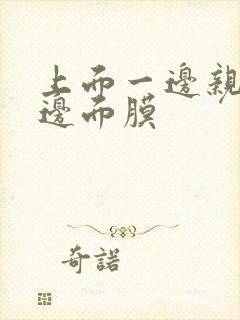 上而一邊親
邊而膜
奇諾